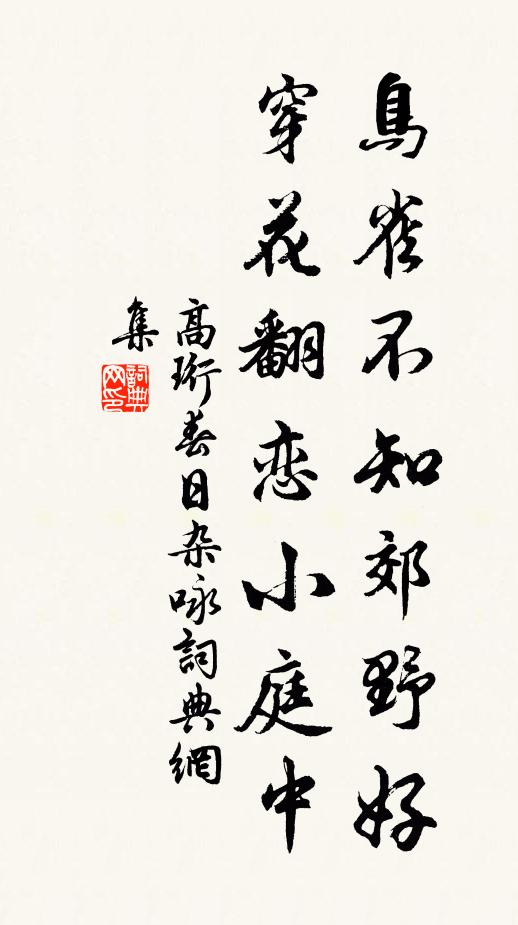 鳥雀不知郊野好
穿花翻恋小庭中
高珩春日杂咏詞典網
集
詞典
网印